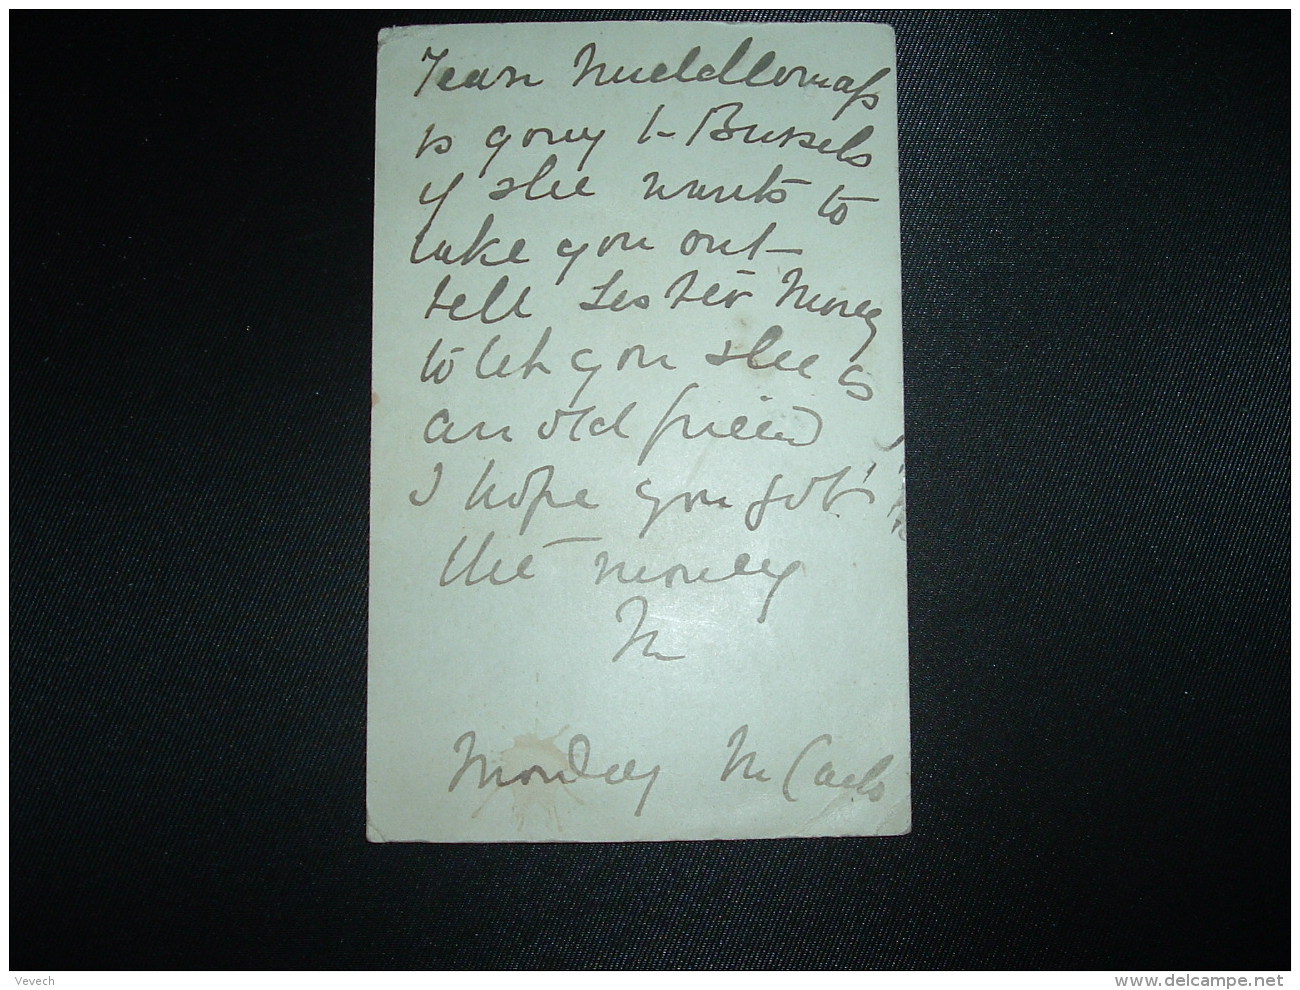 Jean
is going to Brussels
if she wants to
take you out
tell Sister Mary
to let you she is
an old friend
I hope you got
the money
M
Monday M Carlo
Vevech
www.delcampe.net